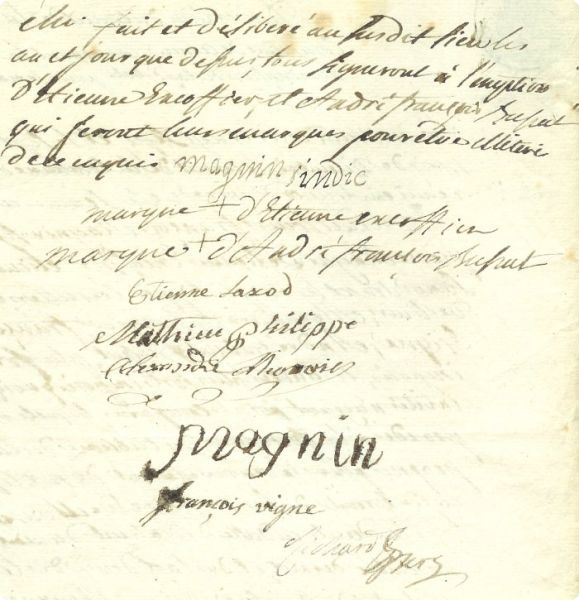 Ainsi fait et délibéré au susdit lieu les
an et jour que dessus, tous signeront à l'exception
D'Etienne Excoffier, et André françois Duput
qui feront leurs marques pour être illiterés
de ce enquis magnin sindic
marque + d'Etienne excoffier
marque + d'André françois Duput
Etienne Saxod
Mathieu philippe
magnin
françois vigne
Richard